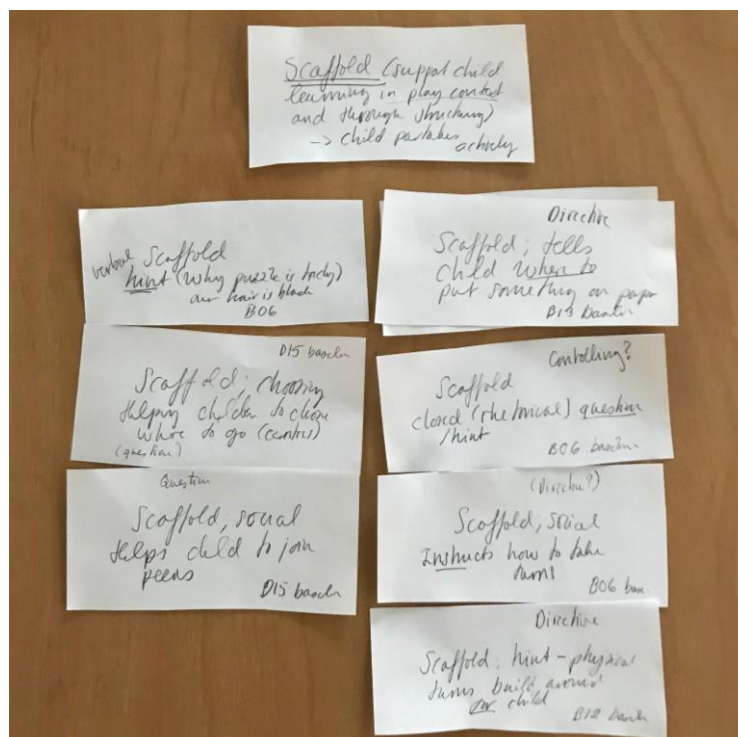 Scaffold (support child
learning in play context
and through structuring)
-> child partakes
actively
verbal Scaffold
hint (why puzzle is tricky)
our hair is black
B06
D15 baseln
Scaffold; choosing
Helping children to chose
where to go (centres)
(question)
Question
Scaffold; social
Helps child to join
peers
D15 baseln
Directive
Scaffold; tells
child where to
put something on paper
B13
Controlling?
Scaffold
closed (rhetorical) question
/hint
B06 baseln
(Directive?)
Scaffold; social
Instructs how to take
turns
B06 base
Directive
Scaffold: hint - physical
turns build around
for child
B12 baseln